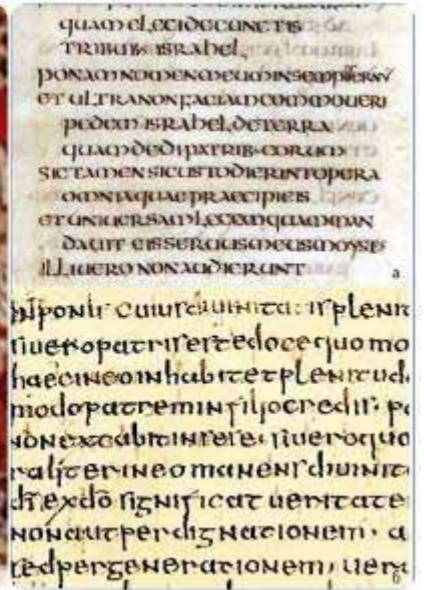 QUAM ELEGI DE CUNCTIS
TRIBUB; ISRAHEL
PONAM NOMEN MEUM IN SEMPITERNU
ET ULTRA NON FACIAM COMMOUERI
PEDEM ISRAHEL DE TERRA
QUAM DEDI PATRIB· EORUM
SIC TAMEN SI CUSTODIERINT OPERA
OMNIA QUAE PRAECEPI EIS
ET UNIUERSAM LEGEM QUAM MAN
DAUIT EIS SERUUS MEUS MOYSES
ILLI UERO NON AUDIERUNT
a
cuius diuinitatis plenit
si uero patris est edoce quo mo
haec in eo inhabitet plenitud
modo patrem in filio credis·
non si uero quo
raliter in eo manens diuinit
di ex do significat ueritate
non aut per dignationem· a
sed per generationem, uera
b